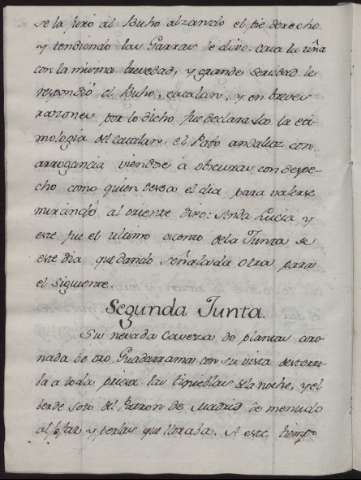 se la puso al Buho alzando el pie derecho
y tendiendo las Garras le dixo. cara la viña
con la misma brevedad, y grande seriedad le
respondió el Buho, catalan, y en breves
razones por lo dicho fue declarada la eti-
mologia del catalan. el Pato andaluz con
arrogancia viendose à obscuras con despe-
cho como quien desea el dia para valerse
mirando al oriente dixo: Santa Lucia y
este fue el ultimo acento dela Junta de
este dia quedando señalada otra para
el siguiente.
Segunda Junta.
Su nevada Caveza de plantas coro-
nada de oro, Guadarrama con su vista desterra-
la a toda prisa las tinieblas de la noche, y el
verde Soto del Patron de Madrid de menudo
aljofar y perlas que llorada. A este tiempo